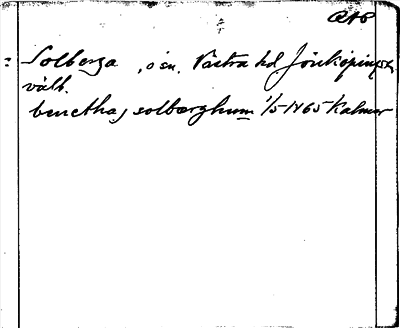 Solberga , ö sn. Västra hd Jönköpings
välb.
benctha, solbærghum 1/5 1465 Kalmar